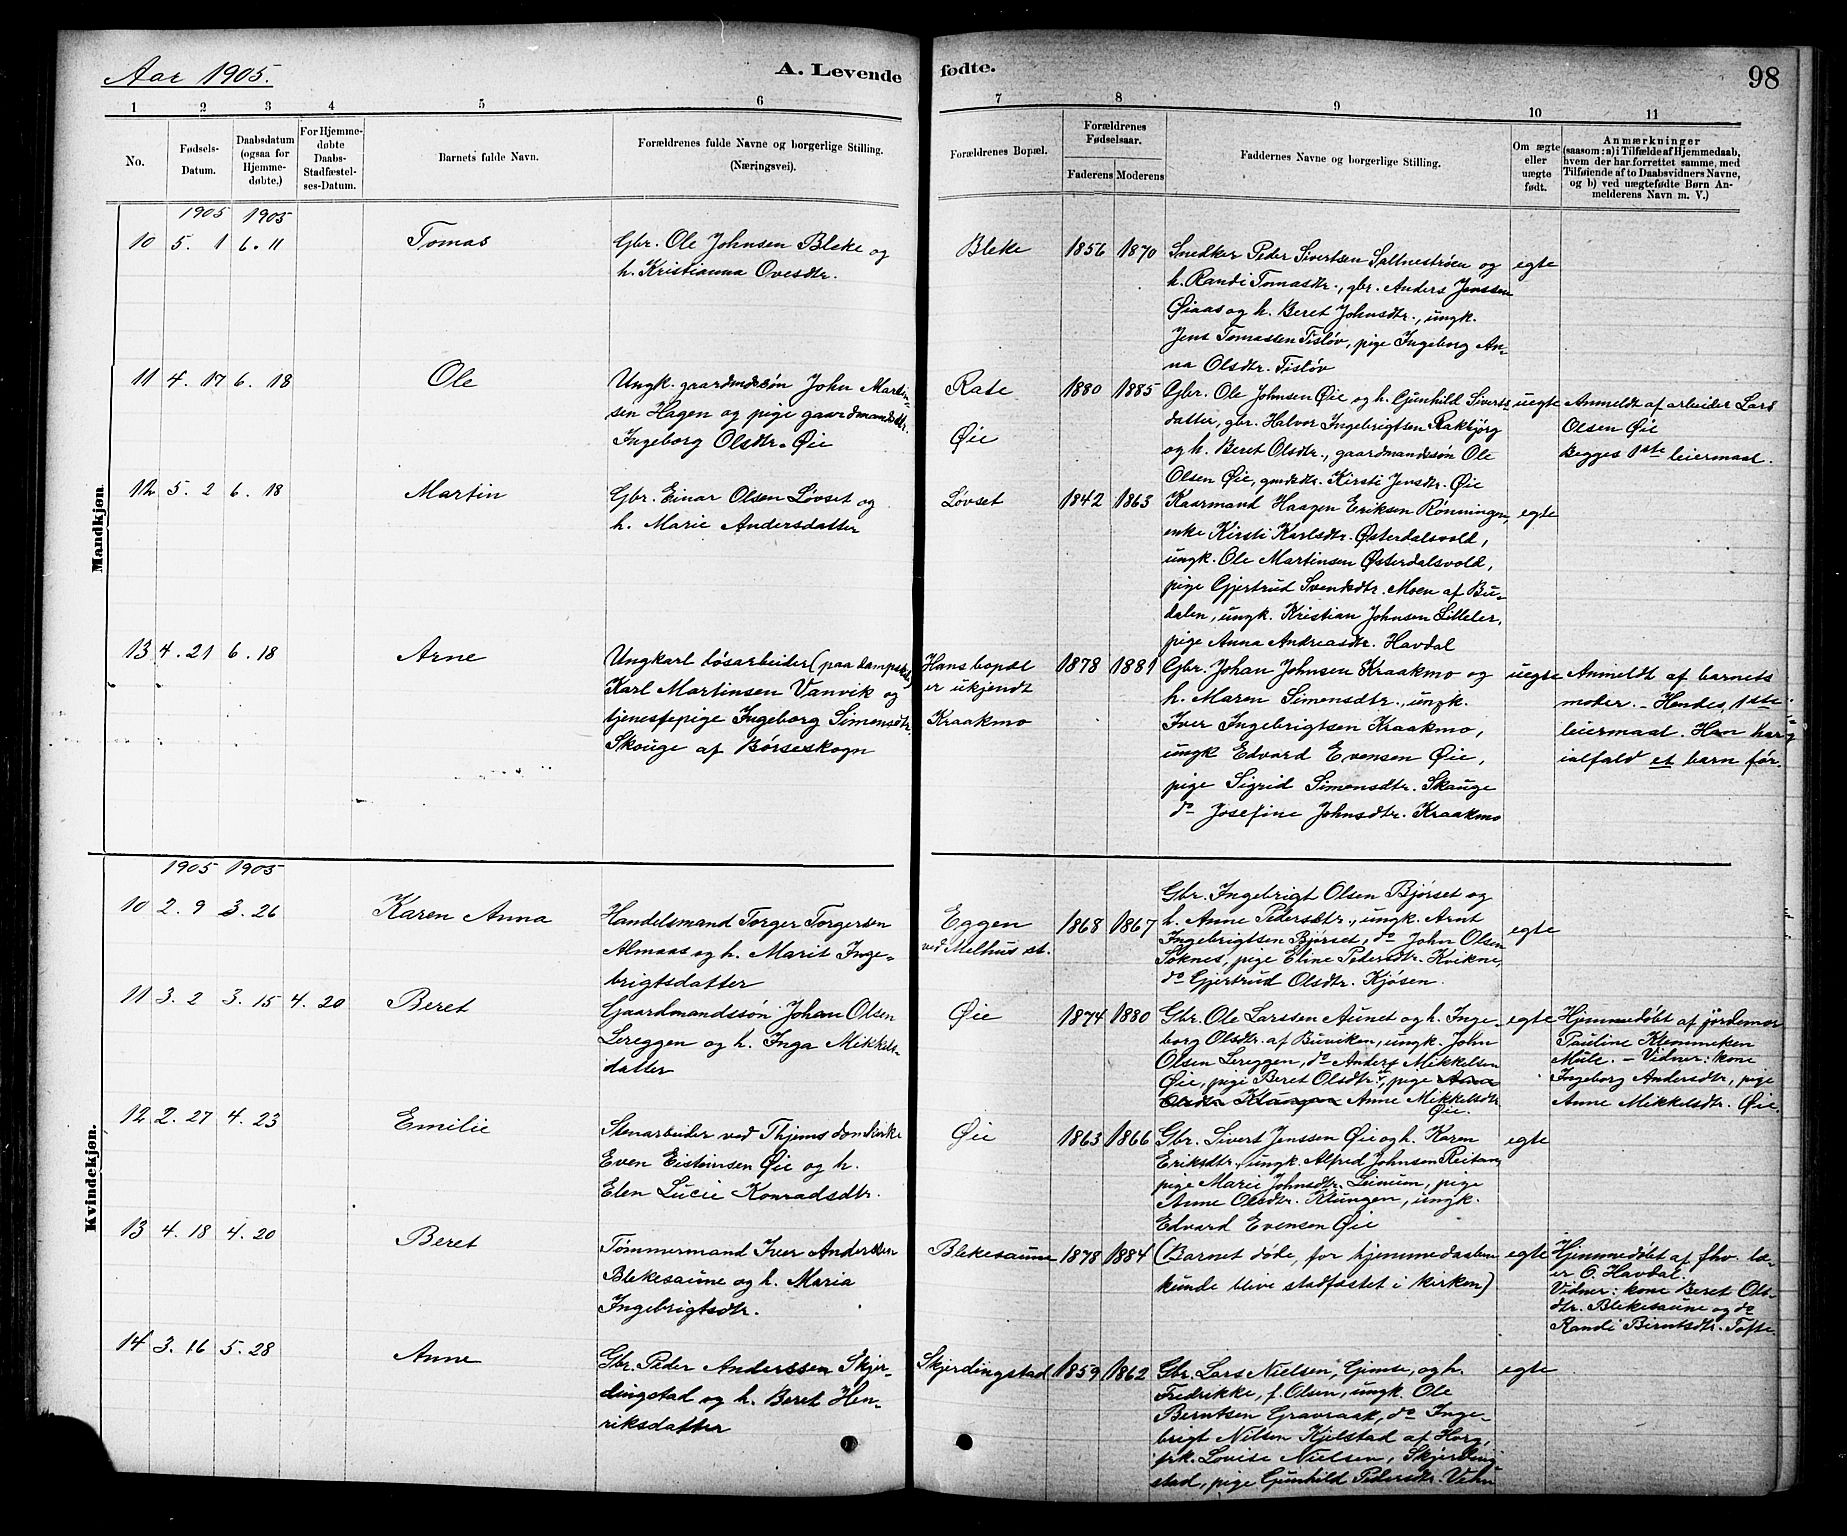 Aar 1905.
A. Levende
fødte.
98
1 2 3 4 5 6 7 8 9 10 11
No.
Fødsels-
Datum.
Daabsdatum
(ogsaa for
Hjemme-
døbte.)
For Hjemme-
døbte
Daabs-
Stadfæstel-
ses-Datum.
Barnets fulde Navn.
Forældrenes fulde Navne og borgerlige Stilling.
(Næringsvei).
Forældrenes Bopæl.
Forældrenes
Fødselsaar.
Faderens Moderens
Faddernes Navne og borgerlige Stilling.
Om ægte
eller
uægte
født.
Anmærkninger
(saasom: a) i Tilfælde af Hjemmedaab,
hvem der har forrettet samme, med
Tilføiende af to Daabsvidners Navne,
og b) ved uægtefødte Børn An-
melderens Navn m. V.)
Mandkjøn.
1905 1905
10 5. 1 6. 11
Tomas
Gbr. Ole Johnsen Bleke og
h. Kristianna Ovesdtr.
Bleke
1856 1870
Snedker Peder Sivertsen Saltnestrøen og
h. Randi Tomasdtr., gbr. Anders Jenssen
Øiaas og h. Beret Johnsdtr., ungk.
Jens Tomassen Tisløv, pige Ingeborg An-
na Olsdtr. Tisløv
egte
11 4. 17 6. 18
Ole
Ungk. gaardmdssøn John Martin-
sen Hagen og pige gaardmandsdtr.
Ingeborg Olsdtr. Øie
Rate
Øie
1880 1885
Gbr. Ole Johnsen Øie og h. Gunhild Siverts-
datter, gbr. Halvor Ingebrigtsen Rakbjørg
og h. Beret Olsdtr., gaardmandssøn Ole
Olsen Øie, gmdsdtr. Kirsti Jensdtr. Øie
uegte
Anmeldt af arbeider Lars
Olsen Øie
Begges 1ste leiermaal.
12 5. 2 6. 18
Martin
Gbr. Einar Olsen Løvset og
h. Marie Andersdatter
Løvset
1842 1863
Kaarmand Haagen Eriksen Rønningen,
enke Kirsti Karlsdtr. Østerdalsvold,
ungk. Ole Martinsen Østerdalsvold,
pige Gjertrud Svendsdtr. Moen af Bu-
dalen, ungk. Kristian Johnsen Litleler,
pige Anna Andreasdtr. Havdal
egte
13 4. 21 6. 18
Arne
Ungkarl løsarbeider (paa dampskibe)
Karl Martinsen Vanvik og
tjenestepige Ingeborg Simonsdtr
Skouge af Børseskogn
Hans bopæl
er ukjendt
Kraakmo
1878 1881
Gbr. Johan Johnsen Kraakmo og
h. Maren Simensdtr., ungk.
Iver Ingebrigtsen Kraakmo,
ungk Edvard Evensen Øie,
pige Sigrid Simensdtr. Skauge
do Josefine Johnsdtr. Kraakmo
uegte
Anmeldt af barnets
moder. - Hendes 1ste
leiermaal. Han har
ialfald et barn før.
Kvindekjøn.
1905 1905
10 2. 9 3. 26
Karen Anna
Handelsmand Torger Torgersen
Almaas og h. Marit Inge-
brigtsdatter
Eggen
ved Melhus st.
1868 1867
Gbr. Ingebrigt Olsen Bjørset og
h. Anne Pedersdtr., ungk. Arnt
Ingebrigtsen Bjørset, do John Olsen
Søknes, pige Eline Pedersdtr. Kvikne,
do Gjertrud Olsdtr. Kjøsen.
egte
11 3. 2 3. 15 4. 20
Beret
Gaardmandssøn Johan Olsen
Lereggen og h. Inga Mikkels-
datter
Øie
1874 1880
Gbr. Ole Larssen Aunet og h. Inge-
borg Olsdtr. af Buviken, ungk. John
Olsen Lereggen, do Anders Mikkelsen
Øie, pige Beret Olsdtr., pige Anna
Olsdtr. Klungen Anne Mikkelsdtr
Øie.
egte
Hjemmedøbt af jordemor
Pauline Klemmeken
Mule. - Vidner: kone
Ingeborg Andersdtr, pige
Anne Mikkelsdtr. Øie.
12 2. 27 4. 23
Emilie
Stenarbeider ved Thjems domkirke
Even Eistensen Øie og h.
Elen Lucie Konradsdtr.
Øie
1863 1866
Gbr. Sivert Jenssen Øie og h. Karen
Eriksdtr., ungk. Alfred Johnsen Reitan,
pige Marie Johnsdtr. Leinum, pige
Anne Olsdtr. Klungen, ungk.
Edvard Evensen Øie
egte
13 4. 18 4. 20
Beret
Tømmermand Iver Andersen
Blekesaune og h. Maria
Ingebrigtsdtr.
Blekesaune
1878 1884
(Barnet døde, før hjemmedaaben
kunde blive stadfæstet i kirken)
egte
Hjemmedøbt af fhv. læ-
rer O. Havdal.
Vidner: kone Beret Ols-
dtr. Blekesaune og do
Randi Berntsdtr. Tofte
14 3. 16 5. 28
Anne
Gbr. Peder Anderssen Skjer-
dingstad og h. Beret Hen-
riksdatter
Skjerdingstad
1859 1862
Gbr. Lars Nielsen, Gimse, og h.
Fredrikke, f. Olsen, ungk. Ole
Berntsen Gravraak, do Inge-
brigt Nilsen Kjelstad af Horg,
frk. Lovise Nielsen, Skjerding-
stad, pige Gunhild Pedersdtr.
egte